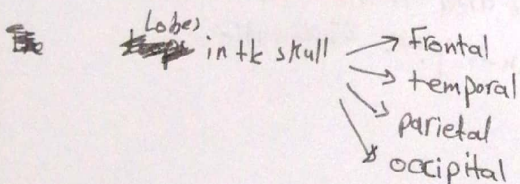 Lobes
in the skull
frontal
temporal
parietal
occipital